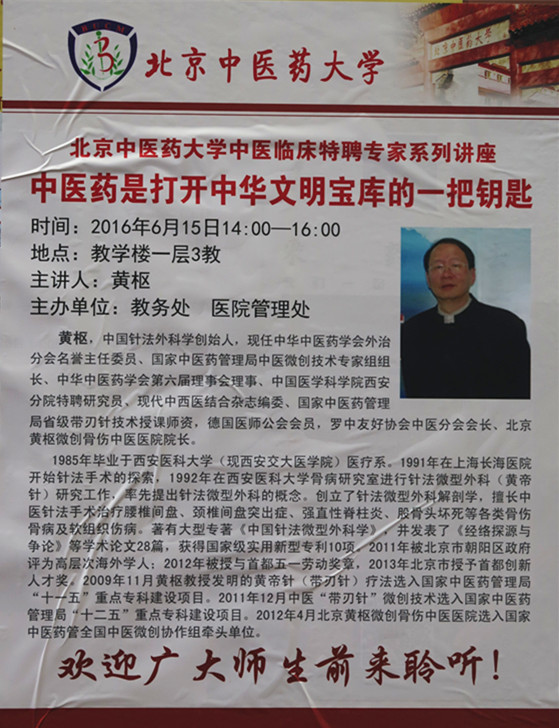 BUCM
北京中医药大学
北京中医药大学
北京中医药大学中医临床特聘专家系列讲座
中医药是打开中华文明宝库的一把钥匙
时间：2016年6月15日14:00—16:00
地点：教学楼一层3教
主讲人：黄枢
主办单位：教务处 医院管理处
黄枢，中国针法外科学创始人，现任中华中医药学会外治
分会名誉主任委员、国家中医药管理局中医微创技术专家组组
长、中华中医药学会第六届理事会理事、中国医学科学院西安
分院特聘研究员、现代中西医结合杂志编委、国家中医药管理
局省级带刃针技术授课师资，德国医师公会会员，罗中友好协会中医分会会长、北京
黄枢微创骨伤中医医院院长。
1985年毕业于西安医科大学（现西安交大医学院）医疗系。1991年在上海长海医院
开始针法手术的探索，1992年在西安医科大学骨病研究室进行针法微型外科（黄帝
针）研究工作，率先提出针法微型外科的概念。创立了针法微型外科解剖学，擅长中
医针法手术治疗腰椎间盘、颈椎间盘突出症、强直性脊柱炎、股骨头坏死等各类骨伤
骨病及软组织伤病。著有大型专著《中国针法微型外科学》，并发表了《经络探源与
争论》等学术论文28篇，获得国家级实用新型专利10项。2011年被北京市朝阳区政府
评为高层次海外学人；2012年被授与首都五一劳动奖章，2013年北京市授予首都创新
人才奖。2009年11月黄枢教授发明的黄帝针（带刃针）疗法选入国家中医药管理局
“十一五”重点专科建设项目。2011年12月中医“带刃针”微创技术选入国家中医药
管理局“十二五”重点专科建设项目。2012年4月北京黄枢微创骨伤中医医院选入国家
中医药管全国中医微创协作组牵头单位。
欢迎广大师生前来聆听！